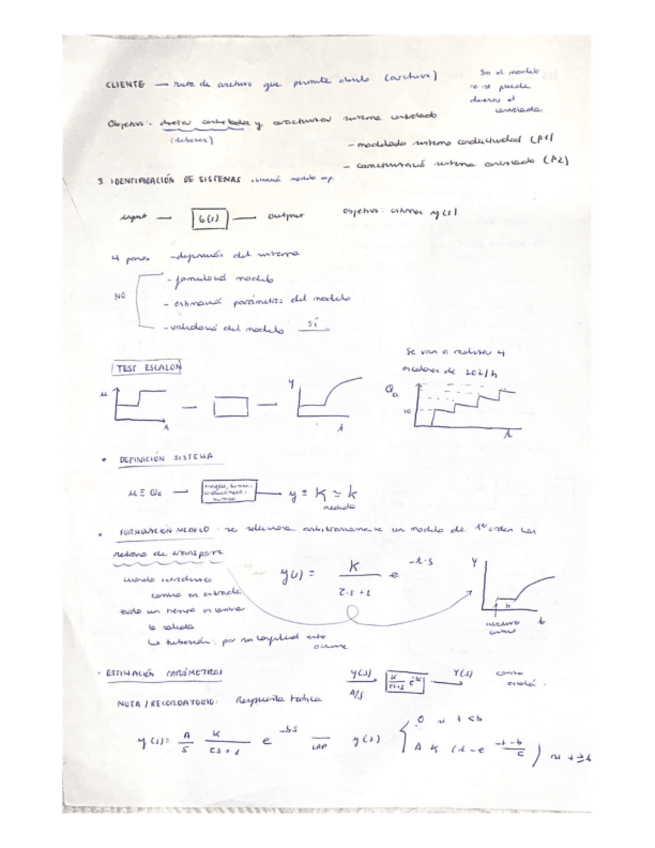 CLIENTE → ruta de archivo que permite abrirlo (archivo)
En el modelo
no se puede
el controlador
Objetivo: diseñar controlador y caracterizar sistema controlado
(deberes)
- modelado sistema conductividad (P1)
- sistema controlado (P2)
3 IDENTIFICACIÓN DE SISTEMAS
input → G(s) → output
Objetivo: estimar y(s)
4 pasos - definición del sistema
- formulación modelo
NO
- estimación parámetros del modelo
- validación del modelo SÍ
TEST ESCALÓN
Se van a realizar 4
escalones de 10 L/h
u
t
y
t
Qa
10
t
• DEFINICIÓN SISTEMA
u ≡ Qa →
→ y ≡ K ≃ k
medida
• FORMULACIÓN MODELO: se selecciona arbitrariamente un modelo de 1er orden con
retraso de transporte
y(s) = K / τ·s+1 e
cuando introduzco
cambio en entrada
tarda un tiempo
la salida
↳ tubería: por su longitud esto
ocurre
y
b
t
introduzco
cambio
- ESTIMACIÓN PARÁMETROS
Y(s)
A/s
Y(s)
NOTA/RECORDATORIO: Respuesta
y(s) = A/s K/τs+1 e^-bs
LAP
y(t) { 0 si t<b
A K (1-e^-t-b/τ) si t≥b